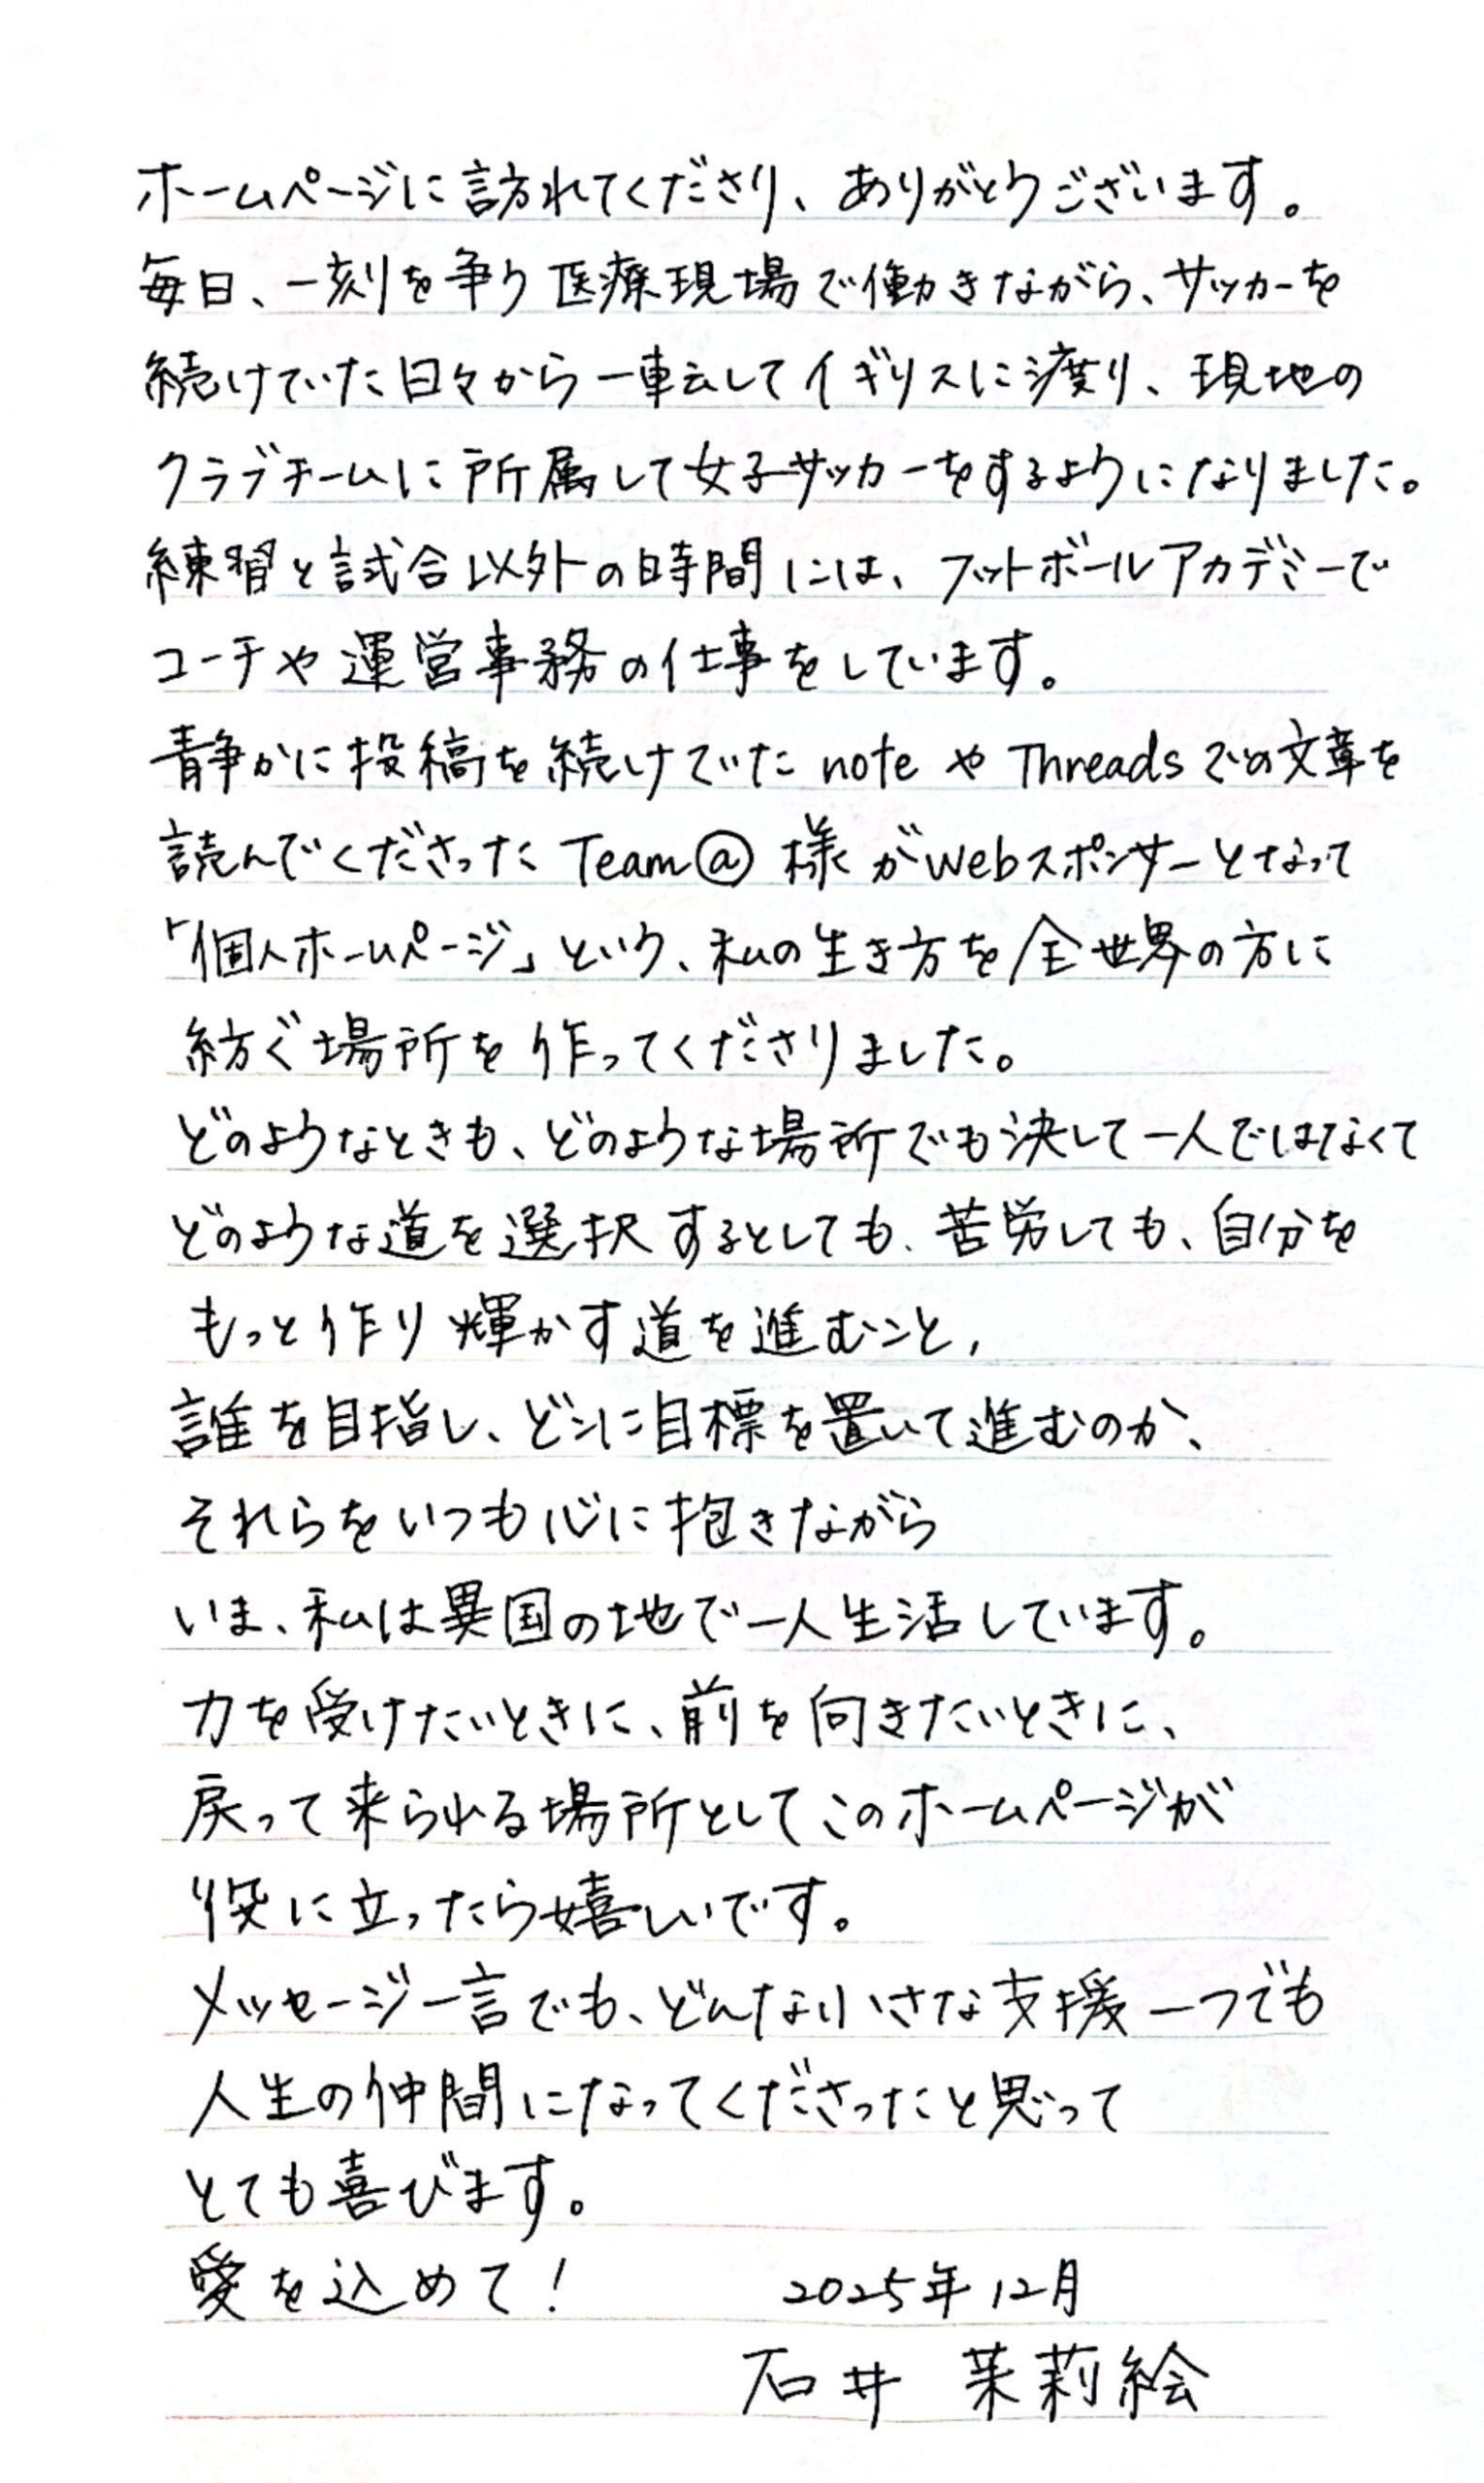 ホームページに訪れてくださり、ありがとうございます。
毎日、一刻を争う医療現場で働きながら、サッカーを
続けていた日々から一転してイギリスに渡り、現地の
クラブチームに所属して女子サッカーをするようになりました。
練習と試合以外の時間には、フットボールアカデミーで
コーチや運営事務の仕事をしています。
静かに投稿を続けていた note や Threads での文章を
読んでくださった Team@ 様がWebスポンサーとなって
「個人ホームページ」という、私の生き方を全世界の方に
紡ぐ場所を作ってくださりました。
どのようなときも、どのような場所でも決して一人ではなくて
どのような道を選択するとしても、苦労しても、自分を
もっと作り輝かす道を進むこと、
誰を目指し、どこに目標を置いて進むのか、
それらをいつも心に抱きながら
いま、私は異国の地で一人生活しています。
力を受けたいときに、前を向きたいときに、
戻って来られる場所としてこのホームページが
役に立ったら嬉しいです。
メッセージ一言でも、どんな小さな支援一つでも
人生の仲間になってくださったと思って
とても喜びます。
愛を込めて！ 2025年12月
石井 茉莉絵